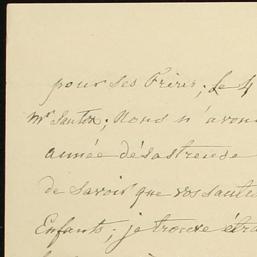 pour ses Frères; le 4
Mr Santon; Nous n'avons
année désastreuse
de savoir que vos santé
Enfants; je trouve étra